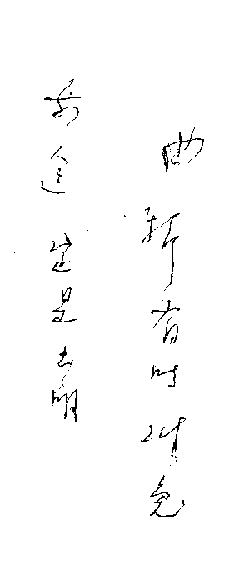 曲折有时难免
前途总是光明